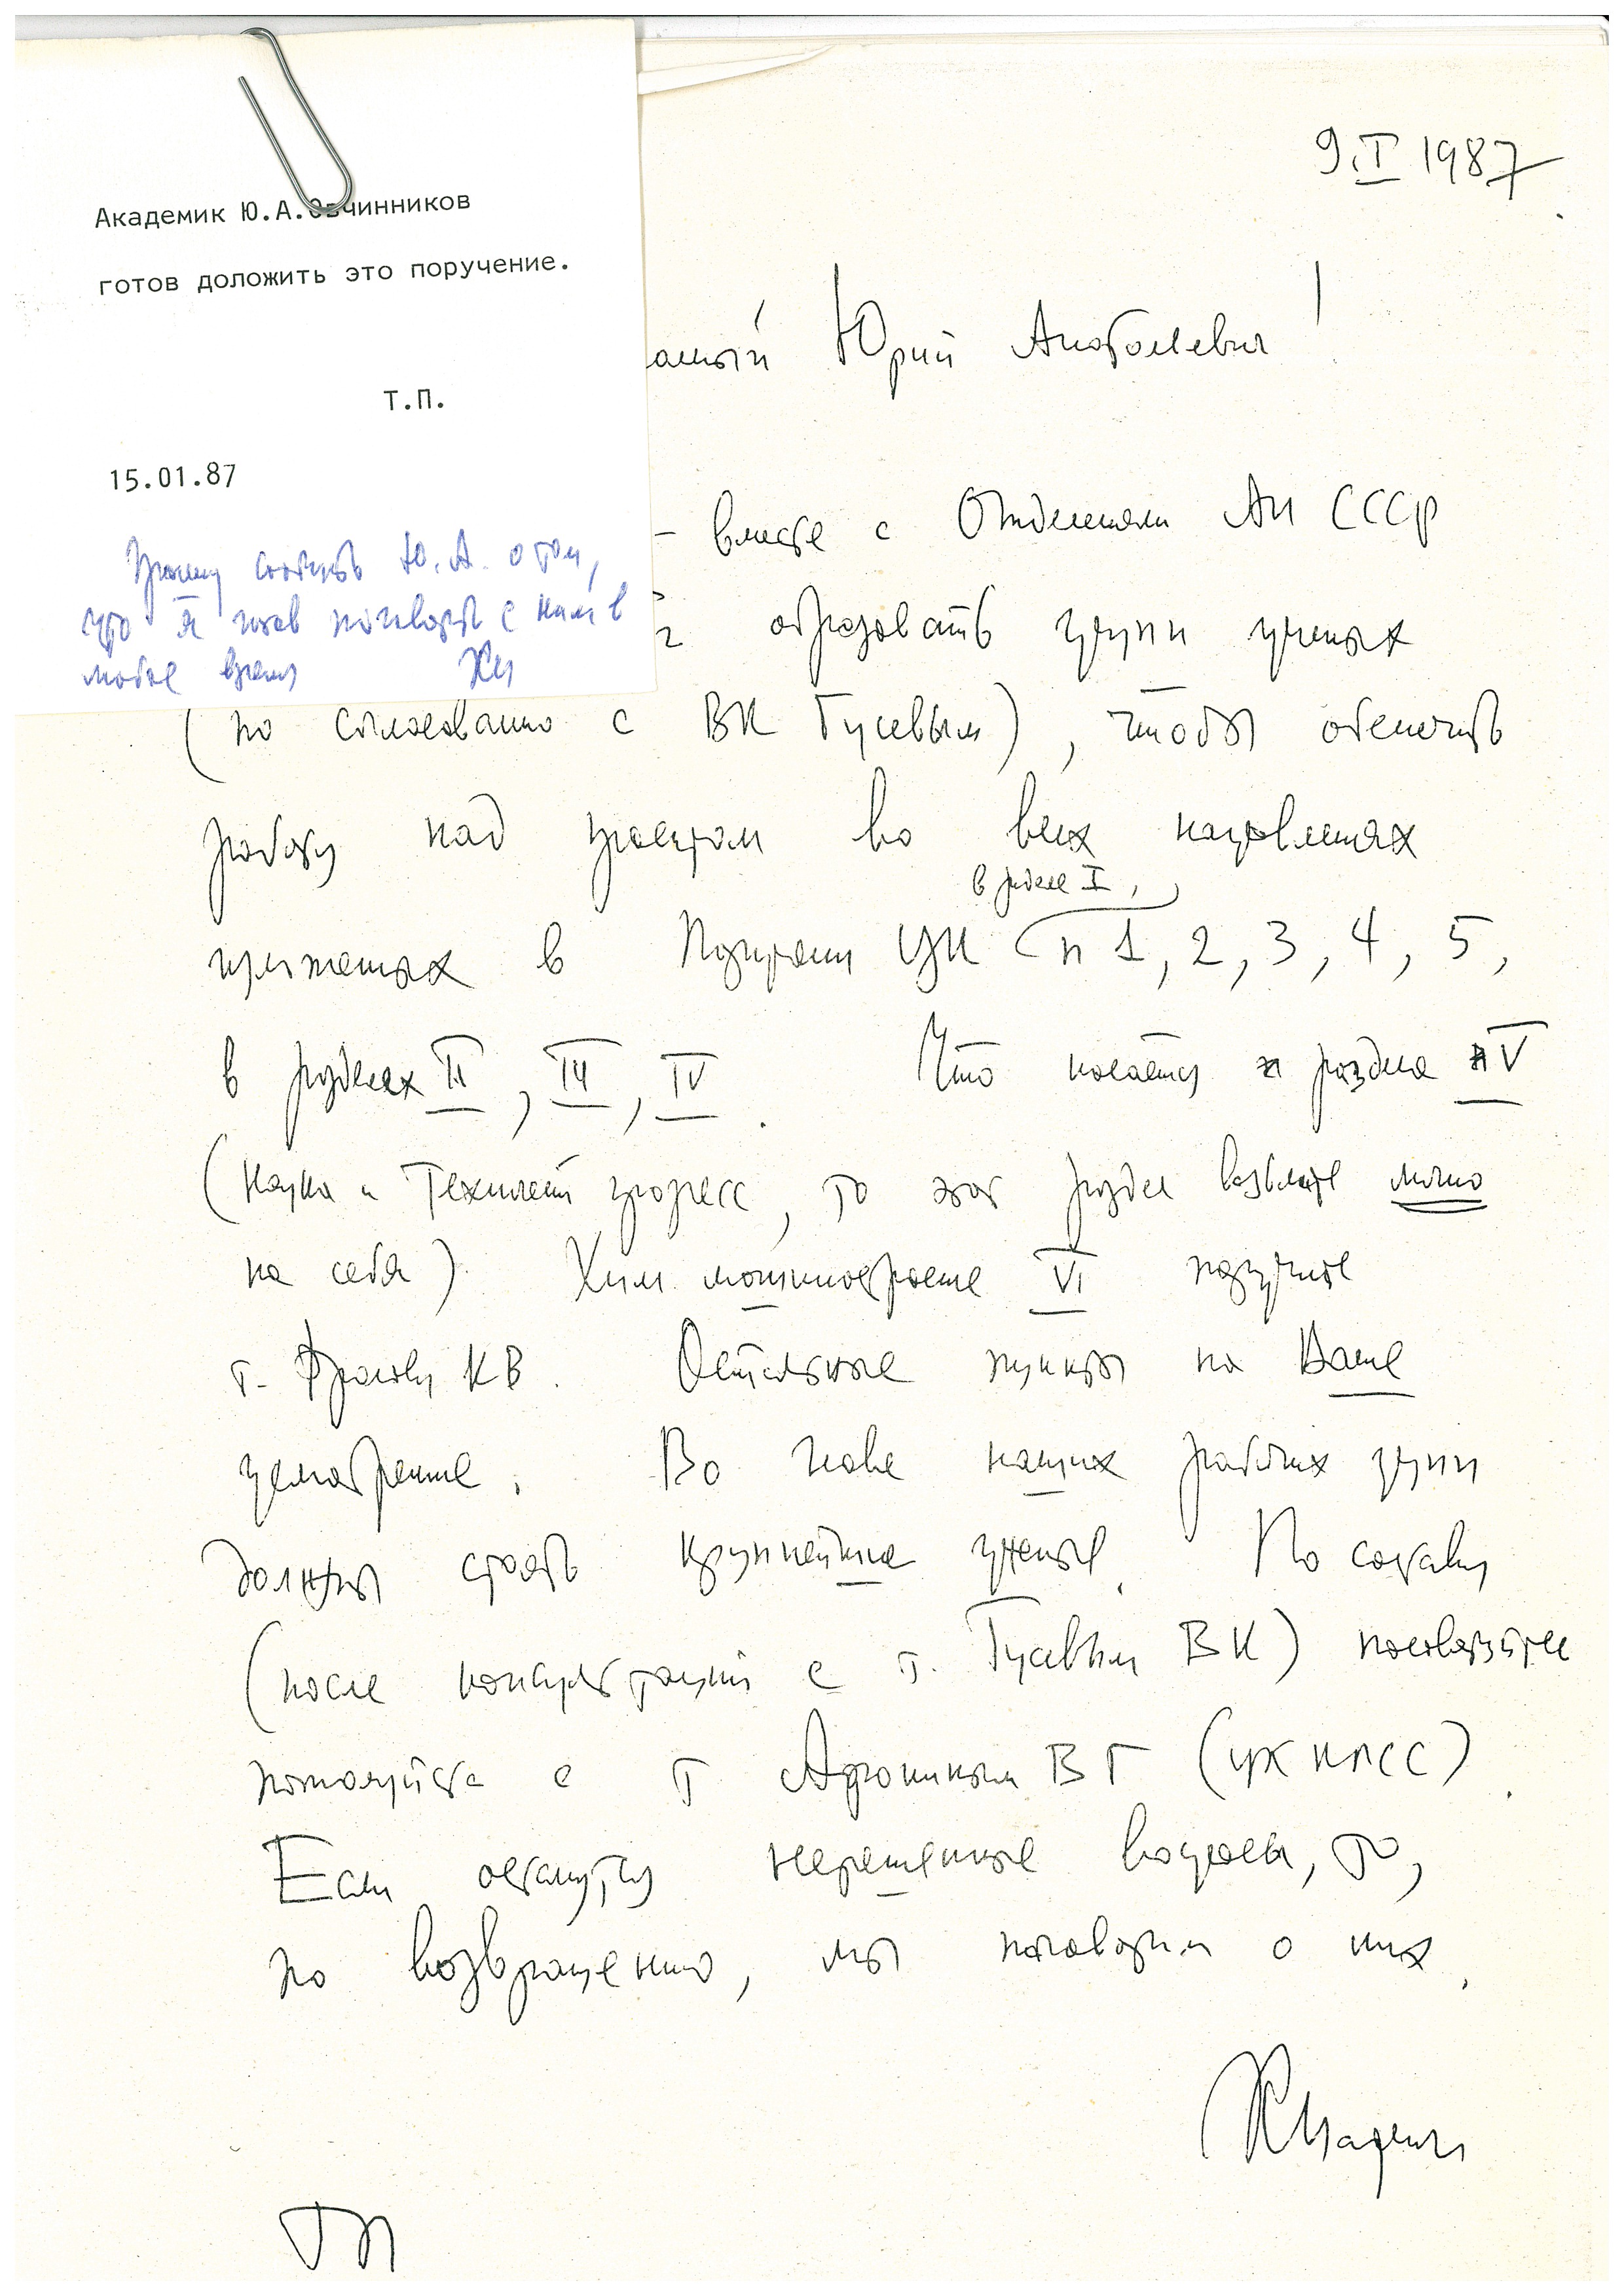 Академик Ю.А.Овчинников
готов доложить это поручение.
Т.П.
15.01.87
Прошу сообщить Ю.А. о том,
что я готов поговорить с ним в
любое время
9.I 1987
Юрий Анатольевич!
– вместе с Отделениями АН СССР
образовать групп ученых
(по согласованию с ВК Гусевым), чтобы обеспечить
работу над проектом во всех направлениях
в разделе I,
в ЦК (п 1, 2, 3, 4, 5,
в разделах II, III, IV. Что касается раздела V
(Наука и Технический прогресс, то этот раздел возьмите лично
на себя). Хим. машиностроение VI поручите
т. Фролову КВ. Остальные пункты на Ваше
усмотрение. Во главе наших рабочих групп
должны стоять крупнейшие ученые. По составу
(после консультаций с т. Гусевым ВК) посоветуйтесь
пожалуйста с т Афониным ВГ (ЦК КПСС).
Если останутся нерешенные вопросы, то,
по возвращению, мы поговорим о них.
ТП